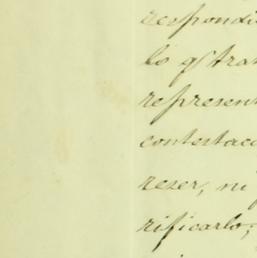 respondi
lo q^e tra
represen
contestac
reser, ni
rificarlo,